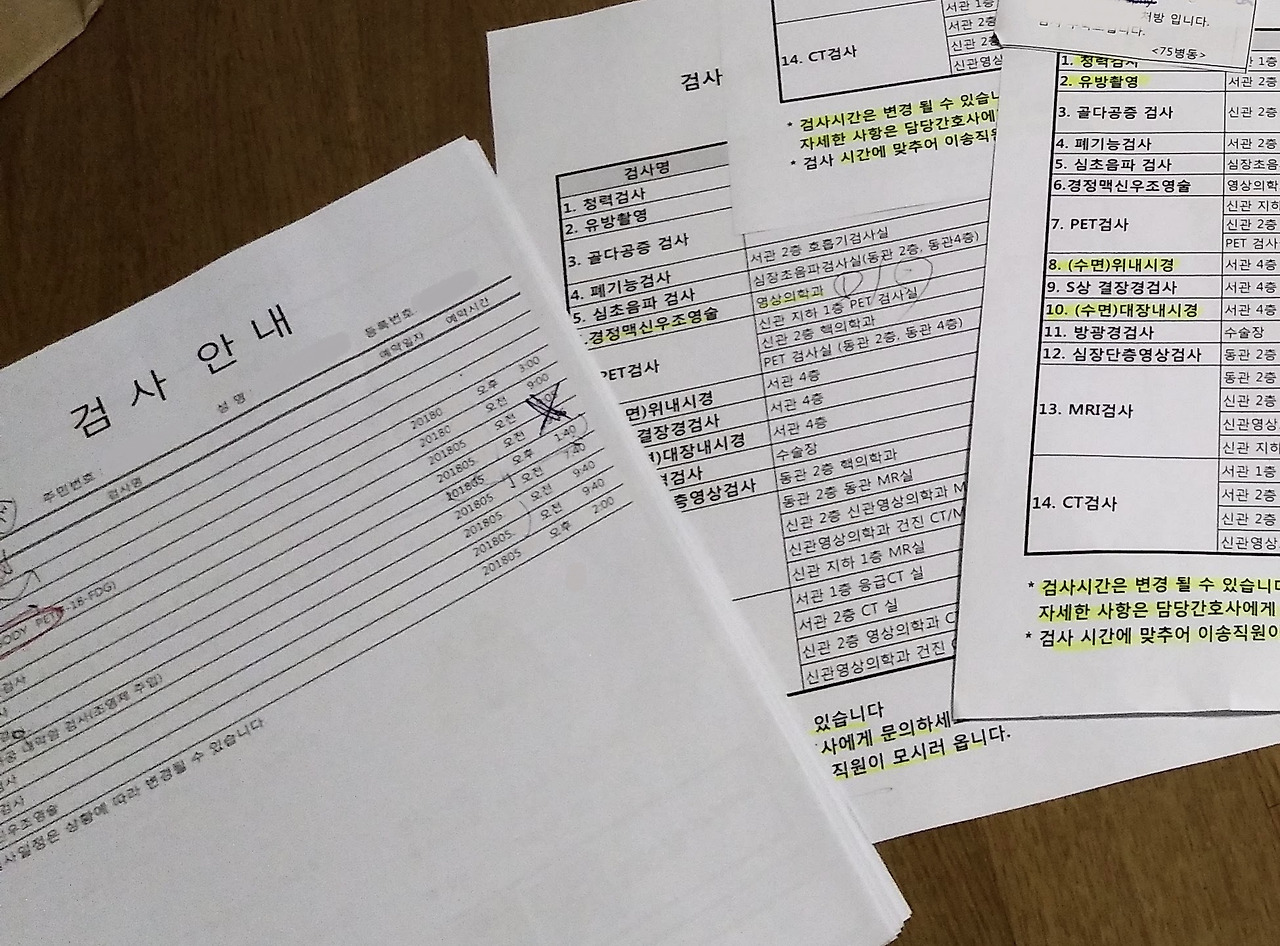 검사 안내
성 명 :
등록번호 :
주민번호 :
검사명
예약일자
예약시간
20180 오후 3:00
20180 오전 9:00
201805 오전
201805 오전
201805 오후 1:40
201805 오전 7:40
201805 오전 9:40
201805 오전 9:40
201805 오후 2:00
BODY PET
18-FDG)
검사
검사(조영제 주입)
검사
검사
신우조영술
검사일정은 상황에 따라 변경될 수 있습니다
검사
검사명
1. 청력검사
2. 유방촬영
3. 골다공증 검사
4. 폐기능검사
서관 2층 호흡기검사실
5. 심초음파 검사
심장초음파검사실(동관 2층, 동관4층)
경정맥신우조영술
영상의학과
PET검사
신관 지하 1층 PET 검사실
신관 2층 핵의학과
PET 검사실 (동관 2층, 동관 4층)
면)위내시경
서관 4층
결장경검사
서관 4층
)대장내시경
서관 4층
경검사
수술장
층영상검사
동관 2층 핵의학과
동관 2층 동관 MR실
신관 2층 신관영상의학과 M
신관영상의학과 건진 CT/M
신관 지하 1층 MR실
서관 1층 응급CT 실
서관 2층 CT 실
신관 2층 영상의학과 C
신관영상의학과 건진
있습니다
사에게 문의하세
직원이 모시러 옵니다.
14. CT검사
서관 1층
서관 2층
신관 2층
신관영상
* 검사시간은 변경 될 수 있습니
자세한 사항은 담당간호사에
* 검사 시간에 맞추어 이송직원
처방 입니다.
<75병동>
1. 청력검사
1층
2. 유방촬영
서관 2층
3. 골다공증 검사
신관 2층
4. 폐기능검사
서관 2층
5. 심초음파 검사
심장초음
6.경정맥신우조영술
영상의학
7. PET검사
신관 지하
신관 2층
PET 검사
8. (수면)위내시경
서관 4층
9. S상 결장경검사
서관 4층
10. (수면)대장내시경
서관 4층
11. 방광경검사
수술장
12. 심장단층영상검사
동관 2층
13. MRI검사
동관 2층
신관 2층
신관영상
신관 지하
14. CT검사
서관 1층
서관 2층
신관 2층
신관영상
* 검사시간은 변경 될 수 있습니다
자세한 사항은 담당간호사에게
* 검사 시간에 맞추어 이송직원이